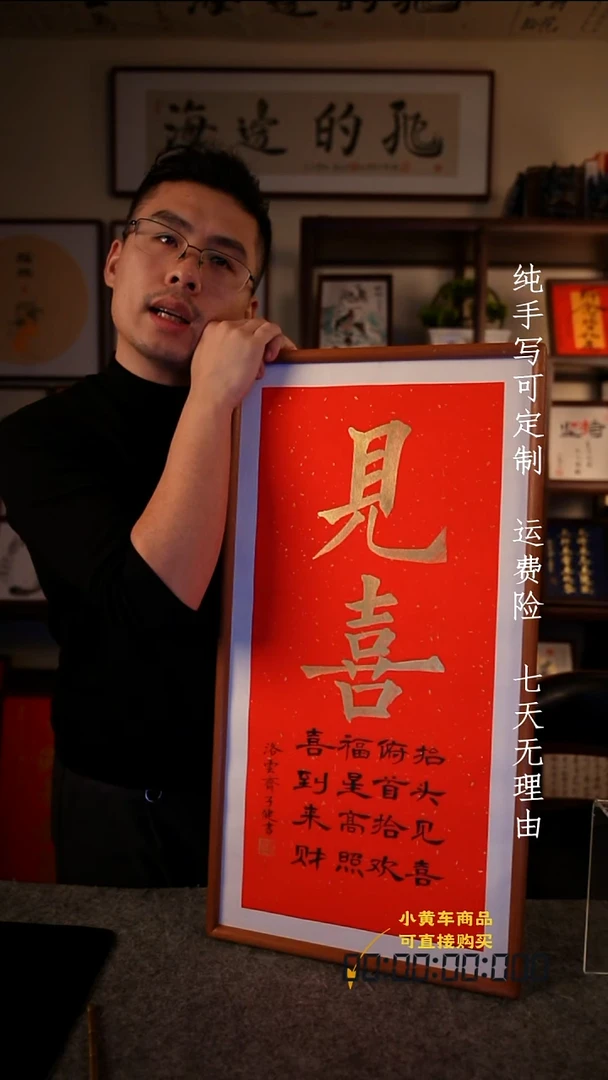 海边的
見喜
抬头见喜
俯首拾欢
福星高照
喜到来财
洛雲齋子健書
纯手写可定制 运费险 七天无理由
坚持
小黄车商品
可直接购买
00:00:00:000